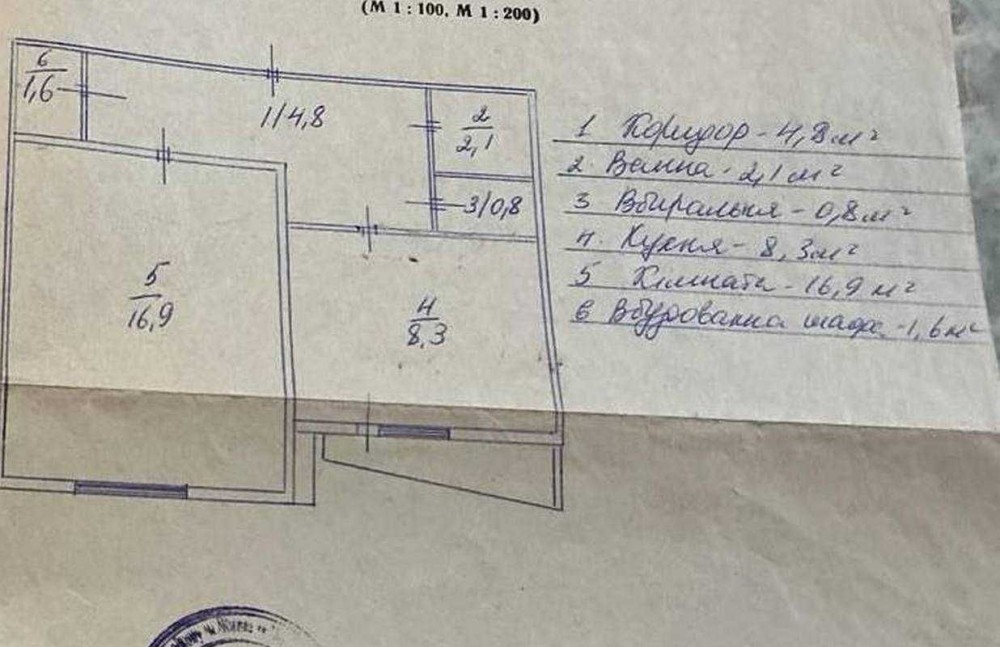 (М 1 : 100, М 1 : 200)
6
1,6
1/4,8
2
2,1
3/0,8
5
16,9
4
8,3
1 Коридор - 4,8 м²
2. Ванна - 2,1 м²
3 Вбиральня - 0,8 м²
4. Кухня - 8,3 м²
5 Кімната - 16,9 м²
6 Вбудована шафа - 1,6 м²